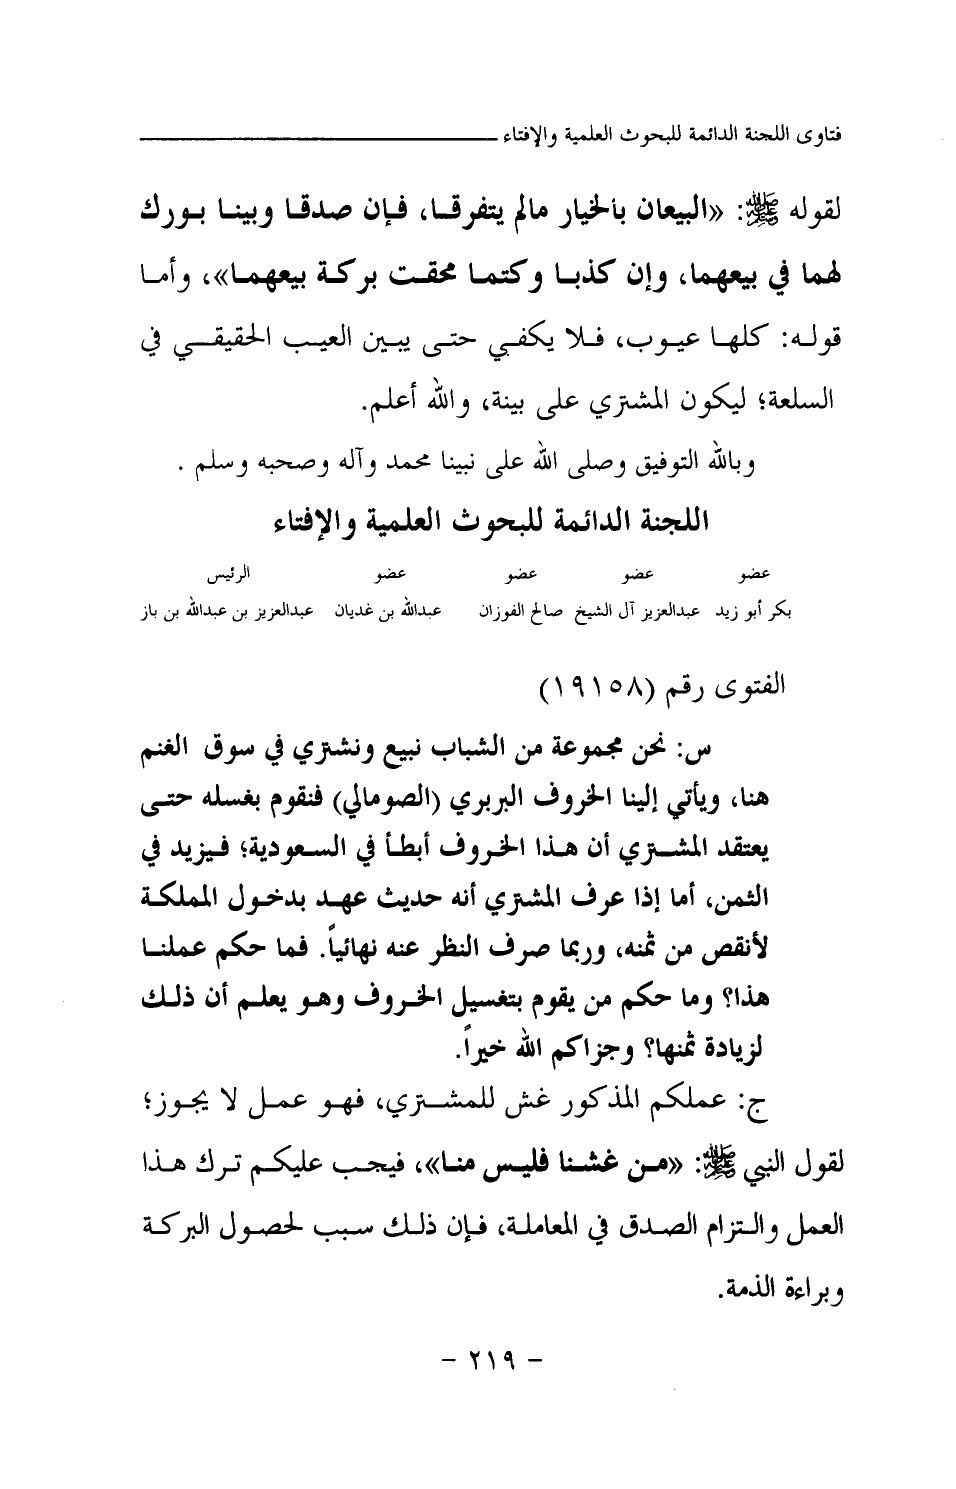 فتاوى اللجنة الدائمة للبحوث العلمية والإفتاء
لقوله ﷺ: «البيعان بالخيار مالم يتفرقا، فإن صدقا وبينا بورك
لهما في بيعهما، وإن كذبا وكتما محقت بركة بيعهما»، وأما
قوله: كلها عيوب، فلا يكفي حتى يبين العيب الحقيقي في
السلعة؛ ليكون المشتري على بينة، والله أعلم.
وبالله التوفيق وصلى الله على نبينا محمد وآله وصحبه وسلم .
اللجنة الدائمة للبحوث العلمية والإفتاء
عضو عضو عضو عضو الرئيس
بكر أبو زيد عبدالعزيز آل الشيخ صالح الفوزان عبدالله بن غديان عبدالعزيز بن عبدالله بن باز
الفتوى رقم (١٩١٥٨)
س: نحن مجموعة من الشباب نبيع ونشتري في سوق الغنم
هنا، ويأتي إلينا الخروف البربري (الصومالي) فنقوم بغسله حتى
يعتقد المشتري أن هذا الخروف أبطأ في السعودية؛ فيزيد في
الثمن، أما إذا عرف المشتري أنه حديث عهد بدخول المملكة
لأنقص من ثمنه، وربما صرف النظر عنه نهائياً. فما حكم عملنا
هذا؟ وما حكم من يقوم بتغسيل الخروف وهو يعلم أن ذلك
لزيادة ثمنها؟ وجزاكم الله خيراً.
ج: عملكم المذكور غش للمشتري، فهو عمل لا يجوز؛
لقول النبي ﷺ: «من غشنا فليس منا»، فيجب عليكم ترك هذا
العمل والتزام الصدق في المعاملة، فإن ذلك سبب لحصول البركة
وبراءة الذمة.
- ٢١٩ -